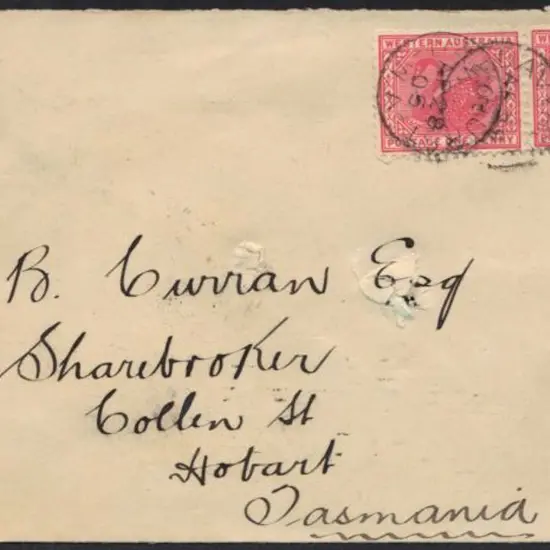 WESTERN AUSTRALIA
POSTAGE ONE PENNY
B. Curran Esq
Sharebroker
Collin St
Hobart
Tasmania